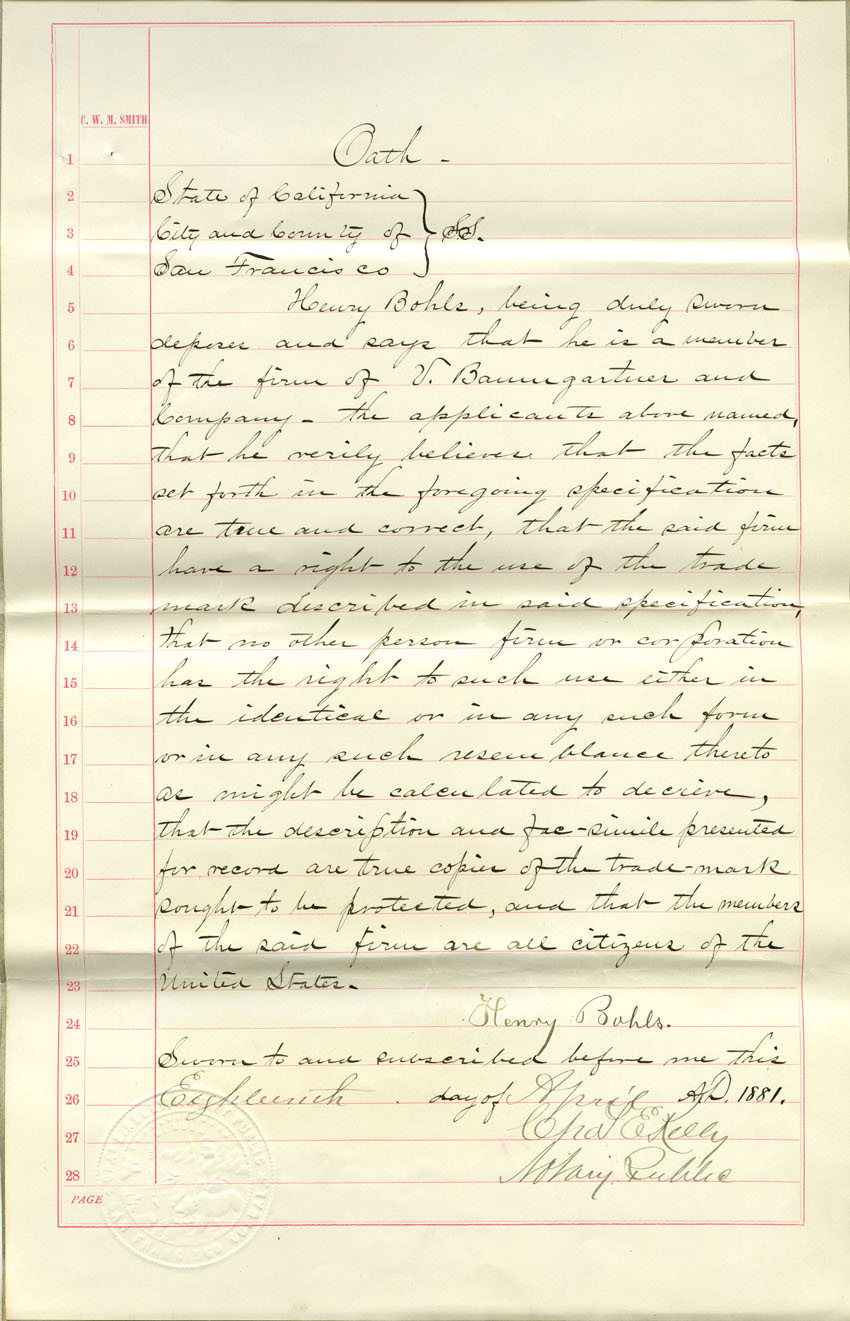 C. W. M. SMITH
1 Oath -
2 State of California
3 City and County of } SS.
4 San Francisco
5 Henry Bohls, being duly sworn
6 deposes and says that he is a member
7 of the firm of V. Baumgartner and
8 Company - the applicants above named,
9 that he verily believes that the facts
10 set forth in the foregoing specification
11 are true and correct, that the said firm
12 have a right to the use of the trade
13 mark described in said specification,
14 that no other person firm or corporation
15 has the right to such use either in
16 the identical or in any such form
17 or in any such resemblance thereto
18 as might be calculated to decieve,
19 that the description and fac-simile presented
20 for record are true copies of the trade-mark
21 sought to be protected, and that the members
22 of the said firm are all citizens of the
23 United States.
24 Henry Bohls.
25 Sworn to and subscribed before me this
26 Eighteenth day of April A.D. 1881.
27 Chas E Kelly
28 Notary Public
PAGE